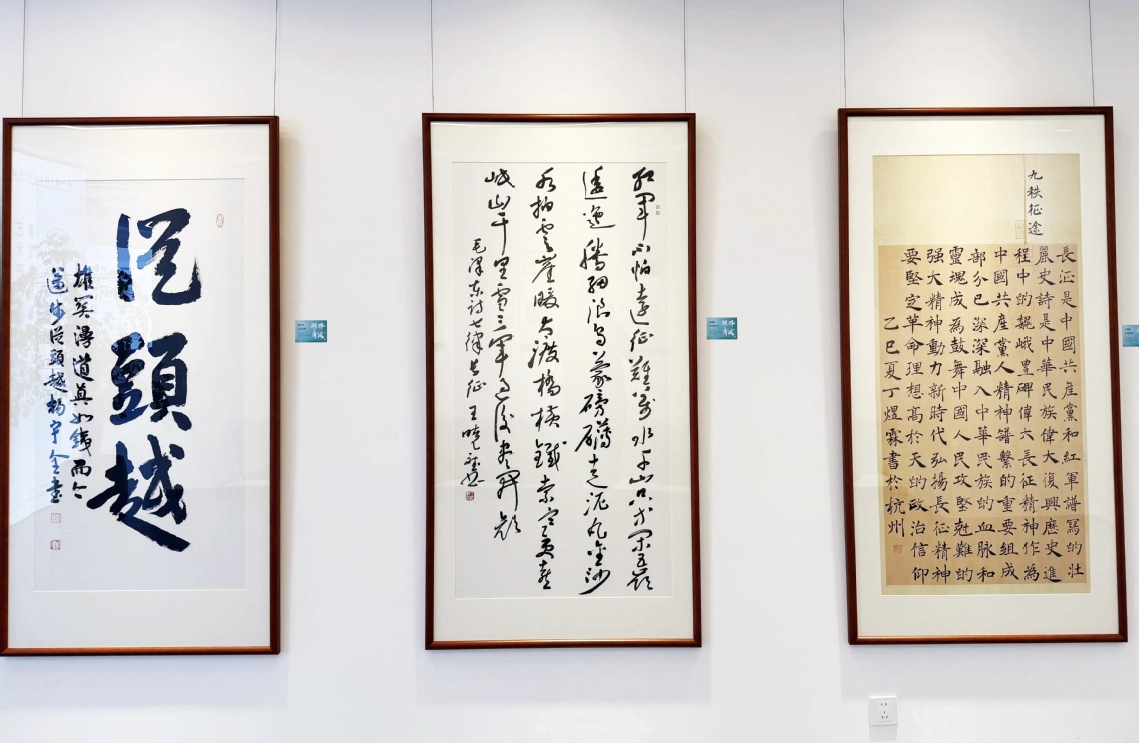 從頭越
雄関漫道真如鐵而今
邁步從頭越楊宇全書
紅軍不怕遠征難萬水千山只等閑五嶺
逶迤騰細浪烏蒙磅礴走泥丸金沙
水拍雲崖暖大渡橋橫鐵索寒更喜
岷山千里雪三軍過後盡開顏
毛澤東詩七律長征 王曉
九秩征途
長征是中國共産黨和紅軍譜寫的壯
麗史詩是中華民族偉大復興歷史進
程中的巍峨豐碑偉大長征精神作為
中國共産黨人精神譜繫的重要組成
部分已深深融入中華民族的血脉和
靈魂成為鼓舞中國人民攻堅尅難的
强大精神動力新時代弘揚長征精神
要堅定革命理想高於天的政治信仰
乙巳夏丁煜霖書於杭州